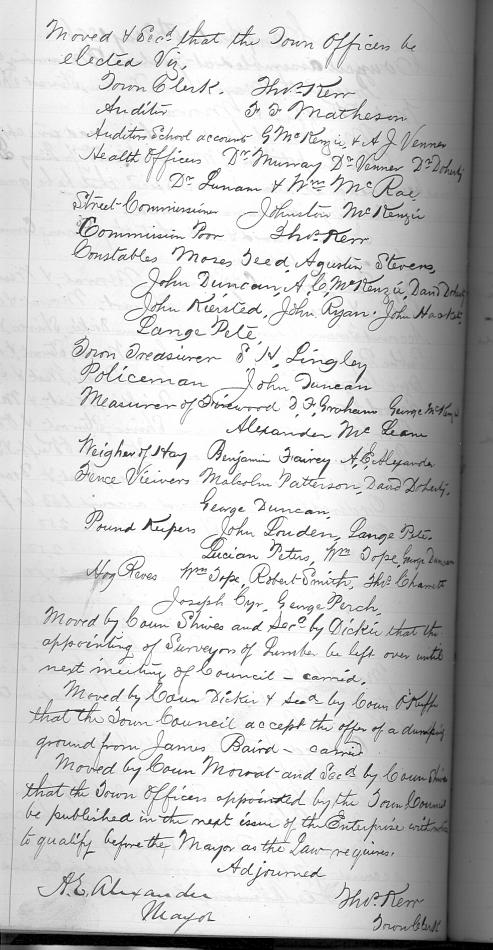 Moved & Sec'd that the Town Officers be
elected Viz.
Town Clerk. Thos Kerr
Auditor F F Matheson
Auditors School account G McKenzie & A J Venner
Health Officers Dr Murray Dr Venner Dr Doherty
Dr Lunam & Wm McRae
Street Commissioner Johnston McKenzie
Commission Poor Thos Kerr
Constables Moses Teed, Agustin Stevens,
John Duncan, A. C. McKenzie, David Doherty
John Kiersted, John Ryan. John
Lange Pete,
Town Treasurer E H, Lingley
Policeman John Duncan
Measurer of Firewood D, F, Graham George McKenzie
Alexander Mc Lean
Weigher of Hay Benjamin Fairey A, E, Alexander
Fence Vieivers Malcolm Patterson, David Doherty,
George Duncan,
Pound Keepers John Louden, Lange Pete.
Lucian Peters, Wm Tope, George Duncan
Hog Reves Wm Tope, Robert Smith, Thos Charrett
Joseph Cyr, George Perch,
Moved by Coun Shives and Sec'd by Dickie that the
appointing of Surveyors of Lumber be left over until
next meeting of Council – carried.
Moved by Coun Dickie & Sec'd by Coun O'Keeffe
that the Town Council accept the offer of a dumping
ground from James Baird – carried
Moved by Coun Mowat and Sec'd by Coun Shives
that the Town Officers appointed by the Town Council
be published in the next issue of the Enterprise with notice
to qualify before the Mayor as the Law requires.
Adjourned
A. E. Alexander Thos Kerr
Mayor Town Clerk